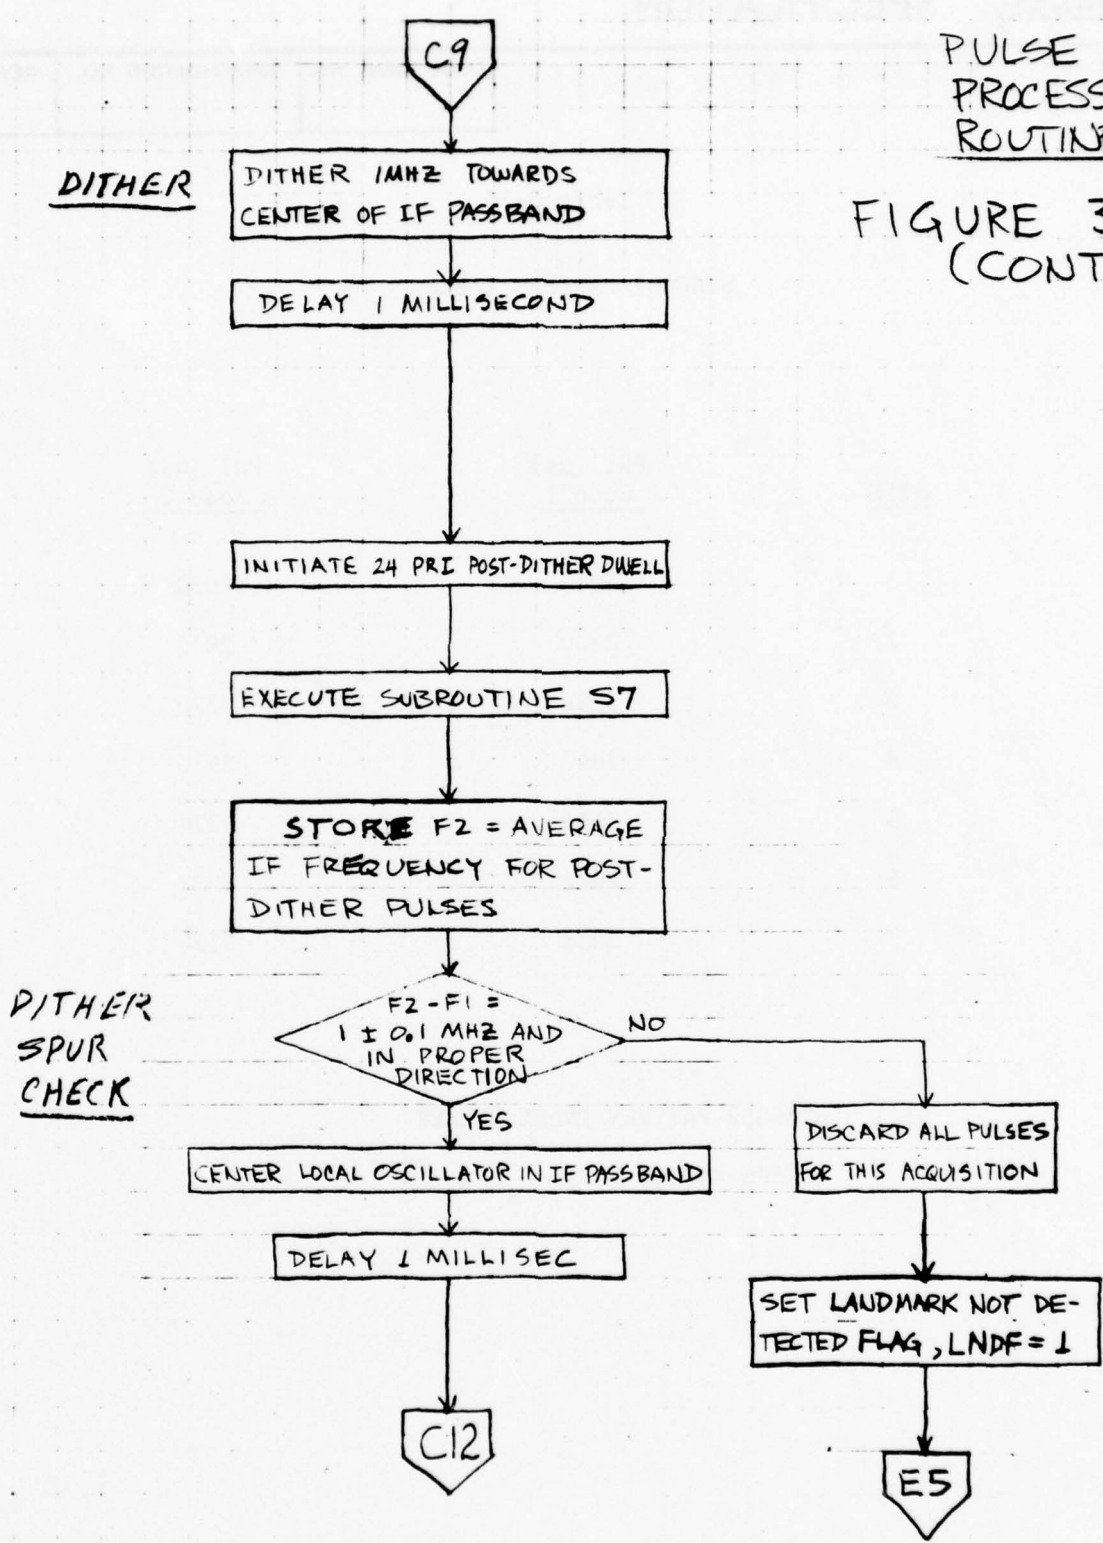 C9
PULSE
PROCESS
ROUTINE
FIGURE 3
(CONT
DITHER
DITHER 1MHZ TOWARDS
CENTER OF IF PASSBAND
DELAY 1 MILLISECOND
INITIATE 24 PRI POST-DITHER DWELL
EXECUTE SUBROUTINE S7
STORE F2 = AVERAGE
IF FREQUENCY FOR POST-
DITHER PULSES
DITHER
SPUR
CHECK
F2-F1 =
1 ± 0.1 MHZ AND
IN PROPER
DIRECTION
NO
YES
CENTER LOCAL OSCILLATOR IN IF PASSBAND
DELAY 1 MILLISEC
C12
DISCARD ALL PULSES
FOR THIS ACQUISITION
SET LANDMARK NOT DE-
TECTED FLAG, LNDF = 1
E5